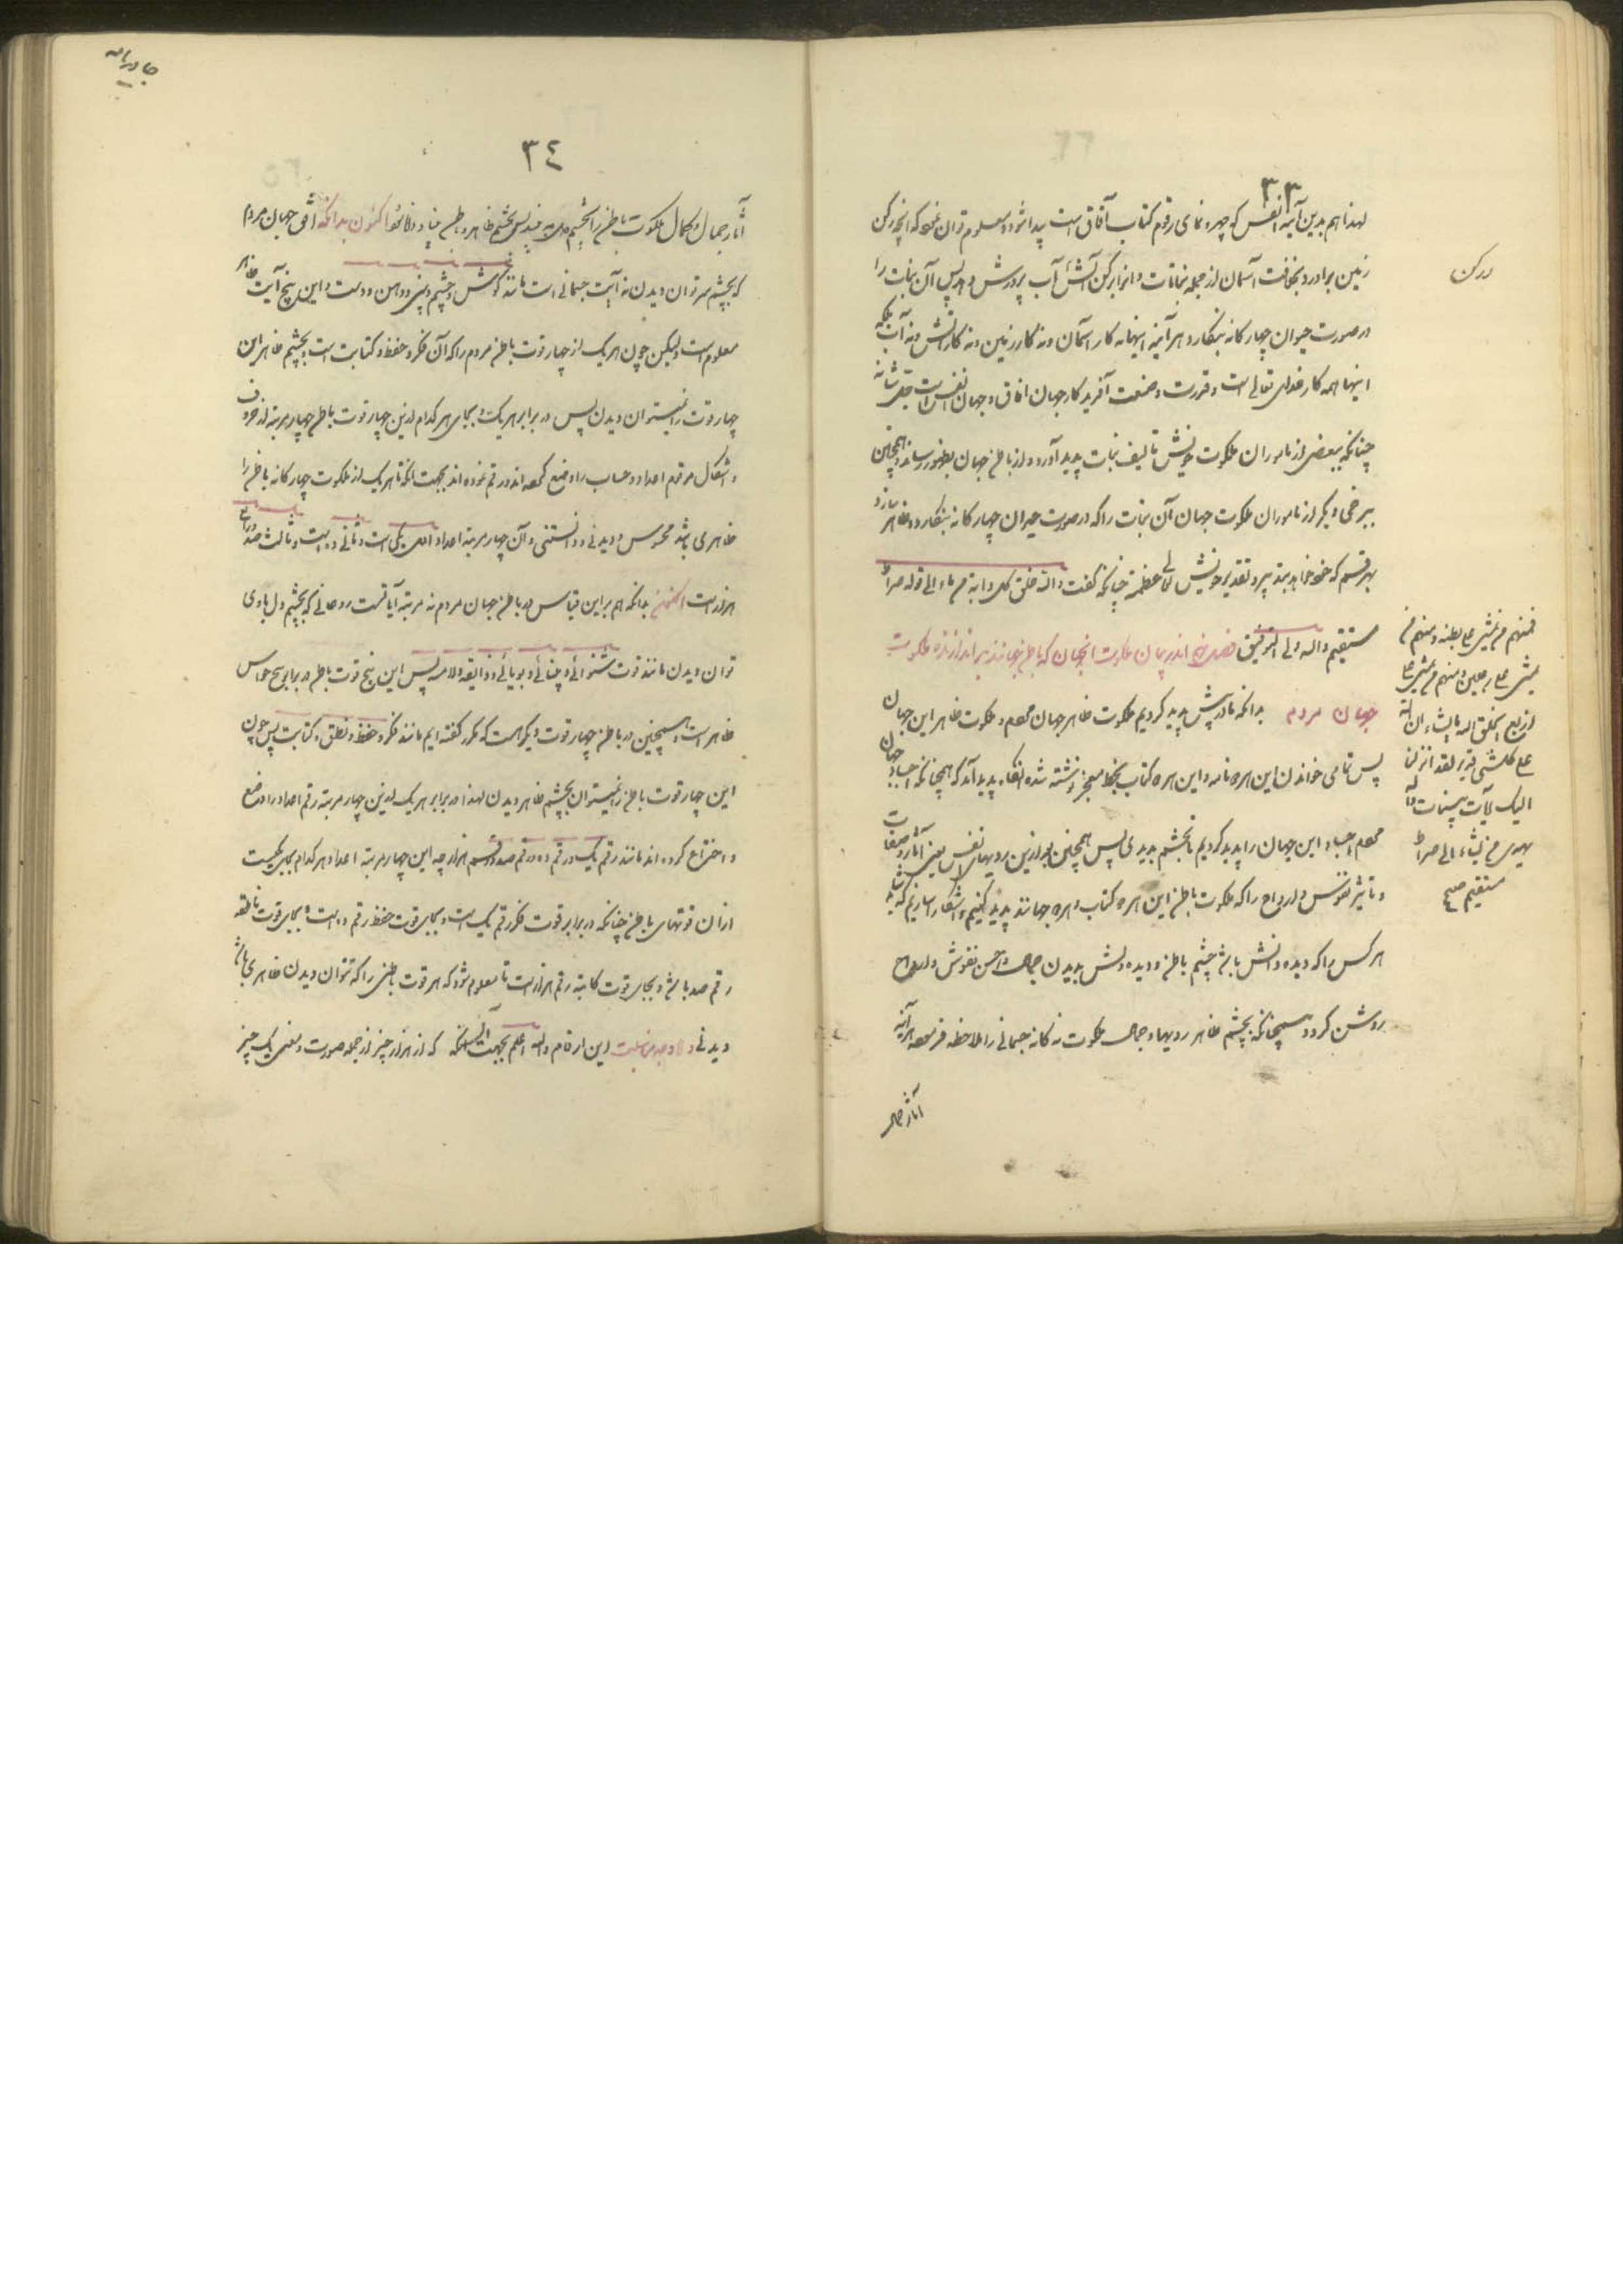 ٣٣
لهذا هم بدین آینه انفس که چهره نمای رقوم کتاب آفاق است پیدا شود و معلوم توان نمود که آنچه رکن
زمین برآورد و بخفانت آسمان از جمله نباتات و انوار رکن آتش آب پرورش دهد پس آن نبات را
در صورت حیوان چهارگانه بنگارد هر آینه اینها نه کار آسمان و نه کار زمین و نه کار آتش و نه آب بلکه
اینها همه کار خدای تعالی است و قدرت و صنعت آفریدگار جهان آفاق و جهان انفس است
چنانکه ببعضی از ماموران ملکوت خویش تالیف نبات پدید آورد و از باطن جهان بظهور رساند و همچنین
ببرخی دیگر از ماموران ملکوت جهان آن نبات را که در صورت حیوان چهارگانه بنگارد و ظاهر سازد
بهر قسم که خود خواهد بتدبیر و تقدیر خویش عظمته چنانکه گفت والله خلق کل دابة من ماء الی قوله صراط
مستقیم والله ولی التوفیق فصل اندر بیان ملکوت انجهان که باطن جهانند بر اندازنده ملکوت
جهان مردم بدانکه ما در پیش پدید کردیم ملکوت ظاهر جهان مردم و ملکوت ظاهر این جهان
پس تمامی خواندن این هر دو نامه و این هر دو کتاب بخط معجز نوشته شده انگاه پدید آید که همچنانکه اجساد جهان
مردم و اجساد این جهان را پدید کردیم تا بچشم بدیدی پس همچنین بعد ازین رویهای انفس یعنی آثار و صفات
و تاثیر نفوس و ارواح را که ملکوت باطن این هر دو کتاب و هر دو جهانند پدید کنیم و آشکار سازیم که تا
هر کس را که دیده دانش باشد چشم باطن و دیده دلش بدیدن جمال و حسن نفوس و ارواح
روشن گردد و همچنانکه بچشم ظاهر رویها و جمال ملکوت نه گانه جسمانی را ملاحظه فرموده هر آینه
آثار جمال
در رکن
فمنهم من یمشی علی بطنه و منهم من
یمشی علی رجلین و منهم من یمشی علی
اربع یخلق الله ما یشاء ان الله
علی کل شیء قدیر لقد انزلنا
الیک آیات بینات والله
یهدی من یشاء الی صراط
مستقیم
٣٤
آثار جمال و کمال ملکوت باطن را بچشم دل بیند پس بچشم ظاهر و باطن بینا و دانا شود اکنون بدانکه افق جهان مردم
که بچشم سر توان دیدن نه آیت جسمانی است مانند گوش و چشم و بینی و دهن و دست و این پنج آیت ظاهر
معلوم است ولیکن چون هر یک از چهار قوت باطن مردم را که آن فکر و حفظ و کتابت است بچشم ظاهر این
چهار قوت را نمیتوان دیدن پس در برابر هر یک و بجای هر کدام ازین چهار قوت باطن چهار مرتبه از حروف
و اشکال مرقوم اعداد و حساب را وضع کرده اند و رقم نموده اند بجهت انکه تا هر یک از ملکوت چهارگانه باطن را
ظاهری باشد محسوس و دیدنی و دانستنی و آن چهار مرتبه اعداد اول یکی است و ثانی ده است و ثالث صد و رابع
هزار است اکنون بدانکه هم بر این قیاس در باطن جهان مردم نه مرتبه آیاتست روحانی که بچشم دل باوی
توان دیدن مانند قوت شنوائی و بینائی و بویائی و ذایقه و لامسه پس این پنج قوت باطن در برابر پنج حواس
ظاهر است و همچنین در باطن چهار قوت دیگر است که مکرر گفته ایم مانند فکر و حفظ و نطق و کتابت پس چون
این چهار قوت باطن را نمیتوان بچشم ظاهر دیدن لهذا در برابر هر یک ازین چهار مرتبه رقم اعداد را وضع
و اختراع کرده اند مانند رقم یک و رقم ده و رقم صد و رقم هزار چه این چهار مرتبه اعداد هر کدام بجای یکیست
از ان قوتهای باطن چنانکه در برابر قوت فکر رقم یک است و بجای قوت حفظ رقم ده است و بجای قوت ناطقه
رقم صد باشد و بجای قوت کاتبه رقم هزار است تا معلوم شود که هر قوت باطنی را که توان دیدن ظاهری باشد
دیدنی و اما وجه مناسبت این ارقام والله اعلم بجهت آنستکه که از هزار چیز از جمله صورت و معنی یک چیز